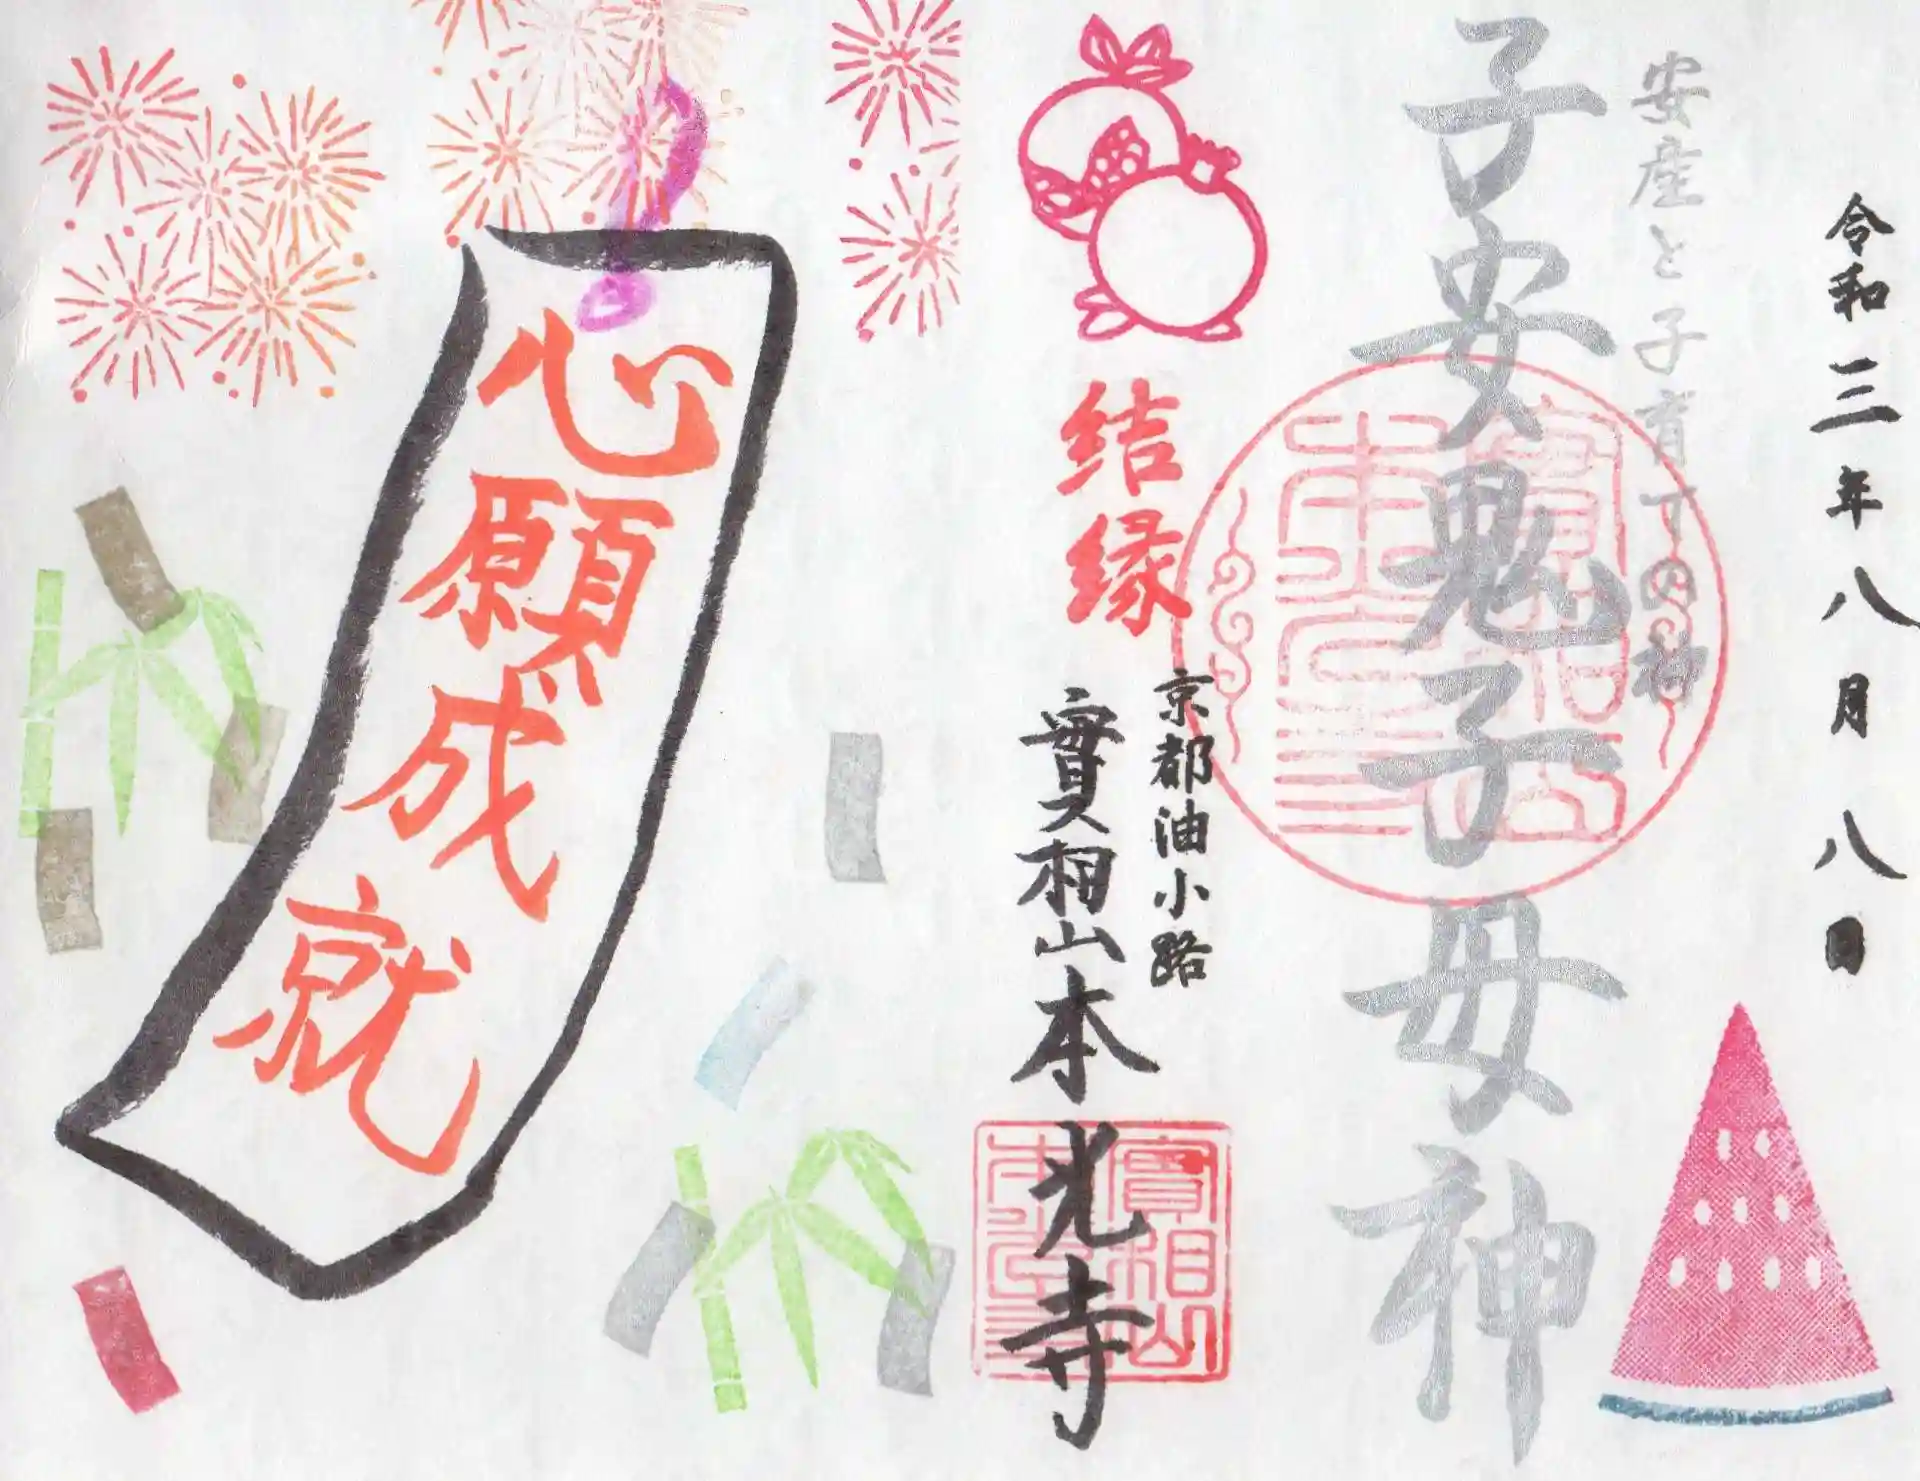 令和三年八月八日
安産と子育ての神
子安鬼子母神
結縁
京都油小路
實相山本光寺
實相山
心願成就